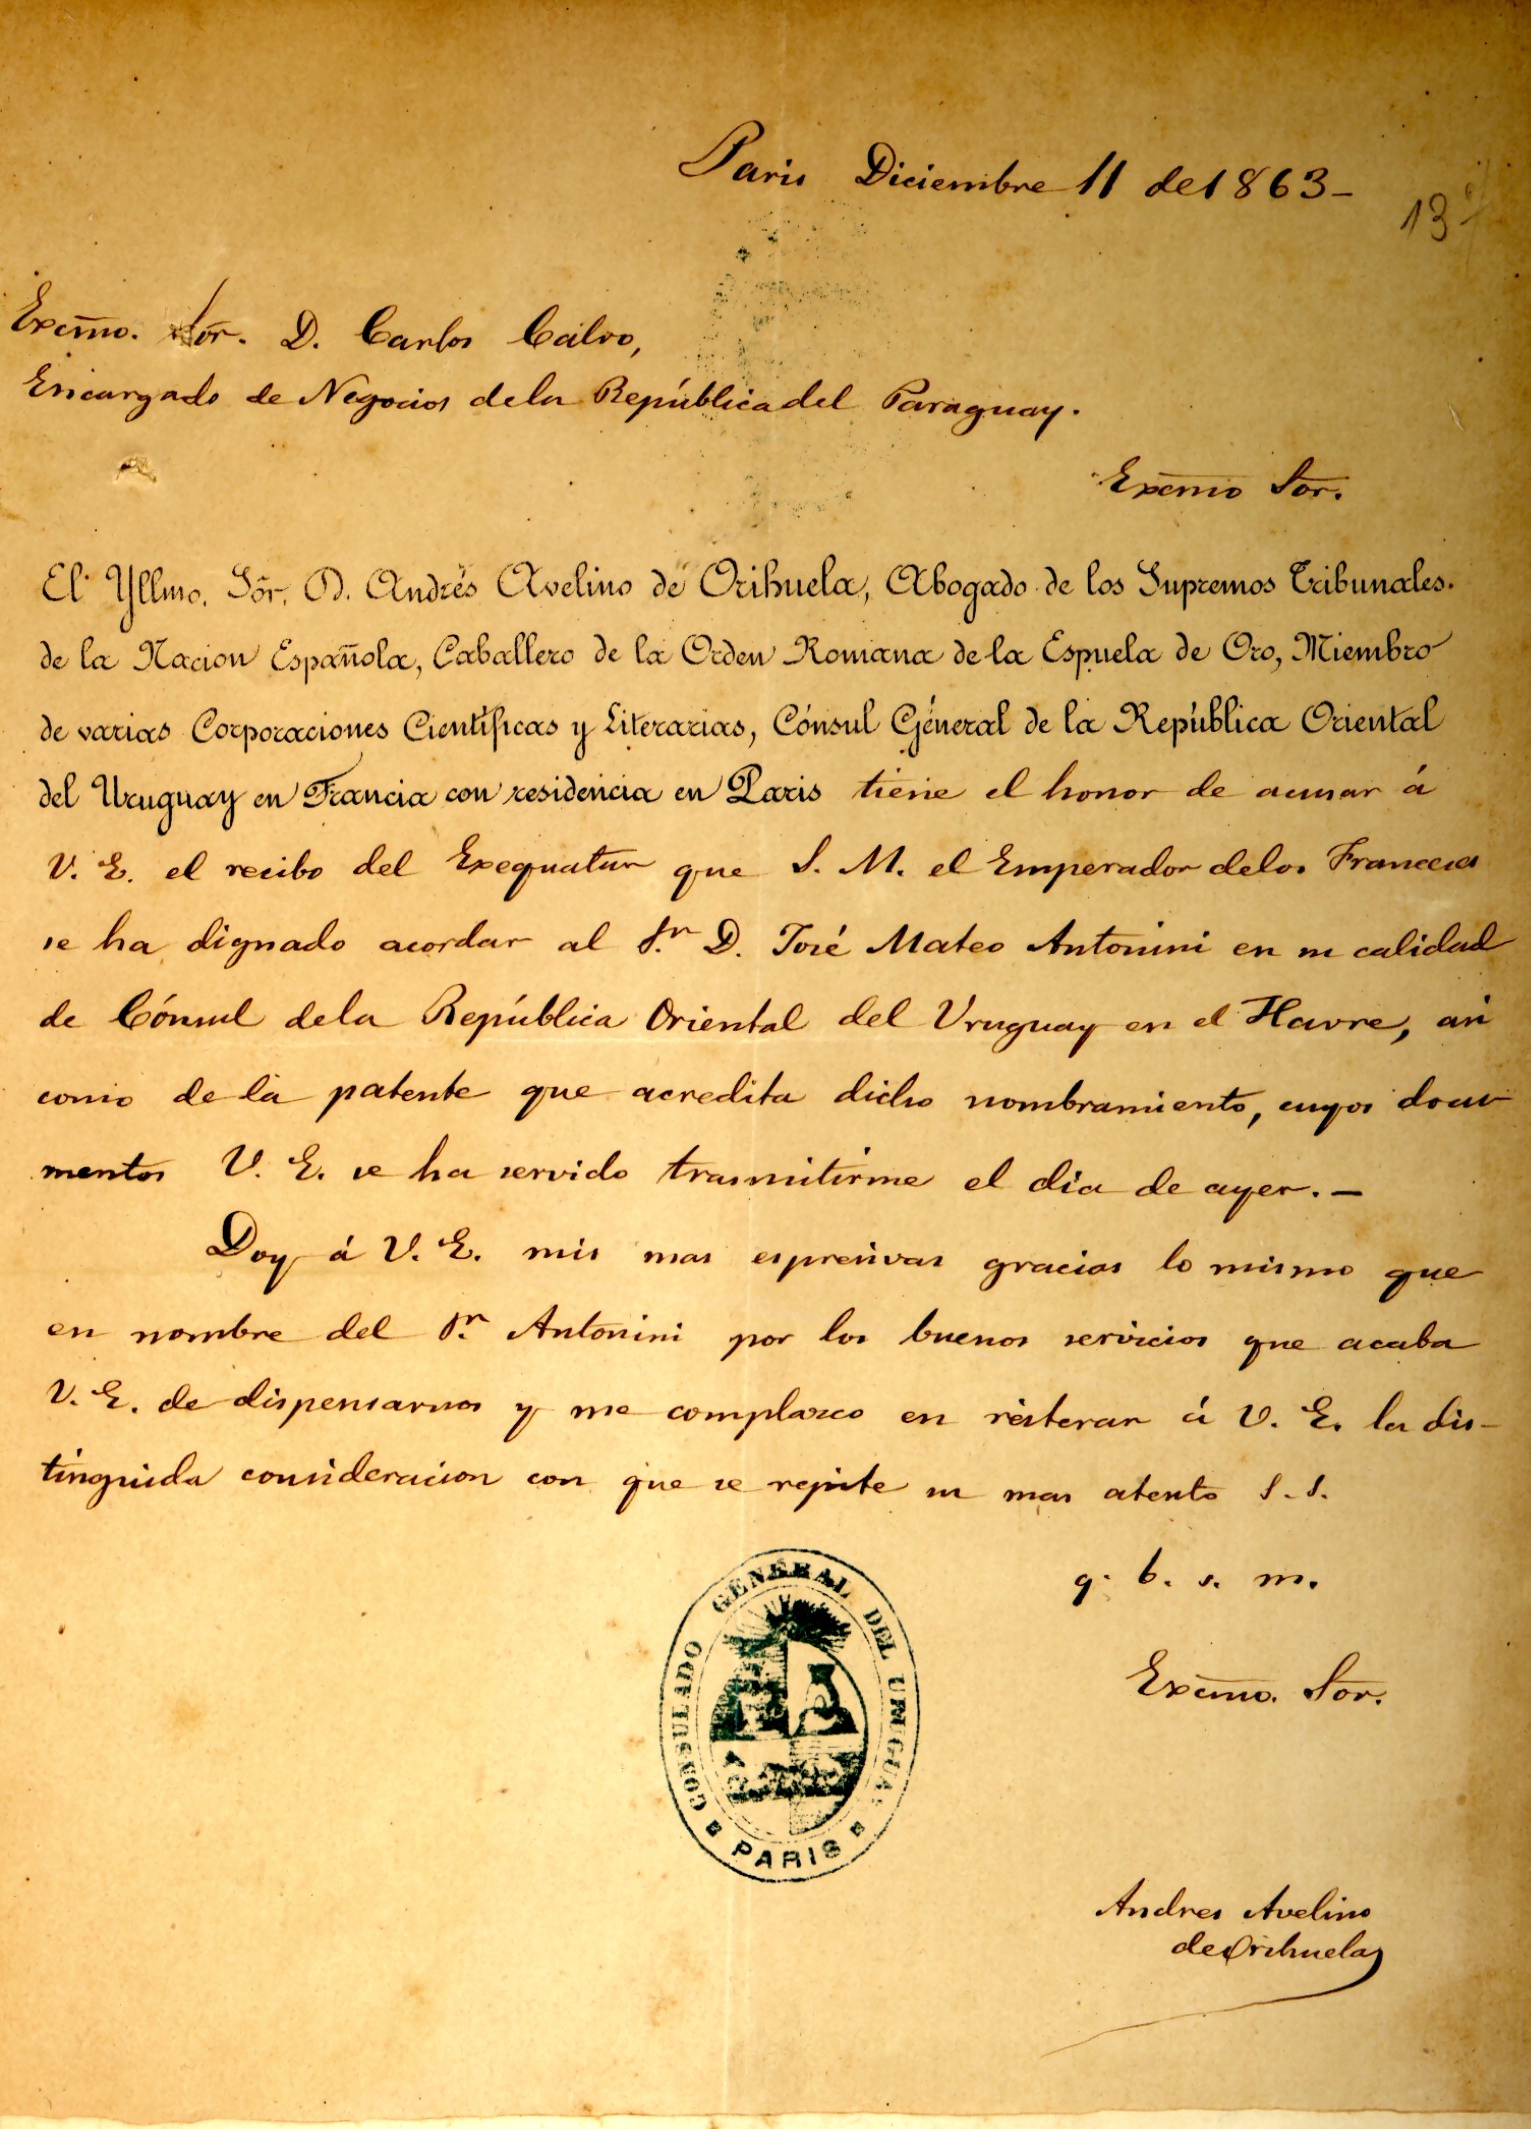 Paris Diciembre 11 de 1863_
13
Excm̃o. Sõr. D. Carlos Calvo,
Encargado de Negocios de la República del Paraguay.
Excm̃o Sõr.
El Yllmo. Sõr. D. Andrés Avelino de Orihuela, Abogado de los Supremos Tribunales.
de la Nacion Española, Caballero de la Orden Romana de la Espuela de Oro, Miembro
de varias Corporaciones Científicas y Literarias, Cónsul Géneral de la República Oriental
del Uruguay en Francia con residencia en Paris tiene el honor de acusar á
V. E. el recibo del Exequatur que S. M. el Emperador de los Franceses
se ha dignado acordar al S.r D. José Mateo Antonini en su calidad
de Cónsul de la República Oriental del Uruguay en el Havre, asi
como de la patente que acredita dicho nombramiento, cuyos docu
mentos V. E. se ha servido trasmitirme el dia de ayer. _
Doy á V. E. mis mas espresivas gracias lo mismo que
en nombre del S.r Antonini por los buenos servicios que acaba
V. E. de dispensarnos y me complazco en reiterar á V. E. la dis-
tinguida consideracion con que se repite su mas atento S. S.
q. b. s. m.
Excm̃o. Sor.
CONSULADO GENERAL DEL URUGUAY
PARIS
Andres Avelino
de Orihuela